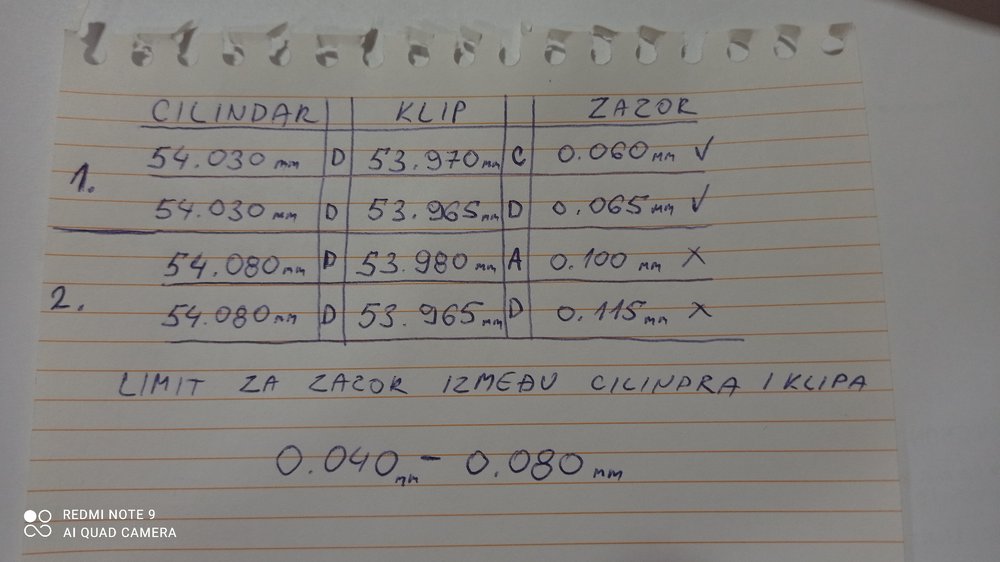 CILINDAR KLIP ZAZOR
1.
54.030 mm D 53.970 mm C 0.060 mm ✓
54.030 mm D 53.965 mm D 0.065 mm ✓
2.
54.080 mm D 53.980 mm A 0.100 mm X
54.080 mm D 53.965 mm D 0.115 mm X
LIMIT ZA ZAZOR IZMEĐU CILINDRA I KLIPA
0.040 mm - 0.080 mm
REDMI NOTE 9
AI QUAD CAMERA